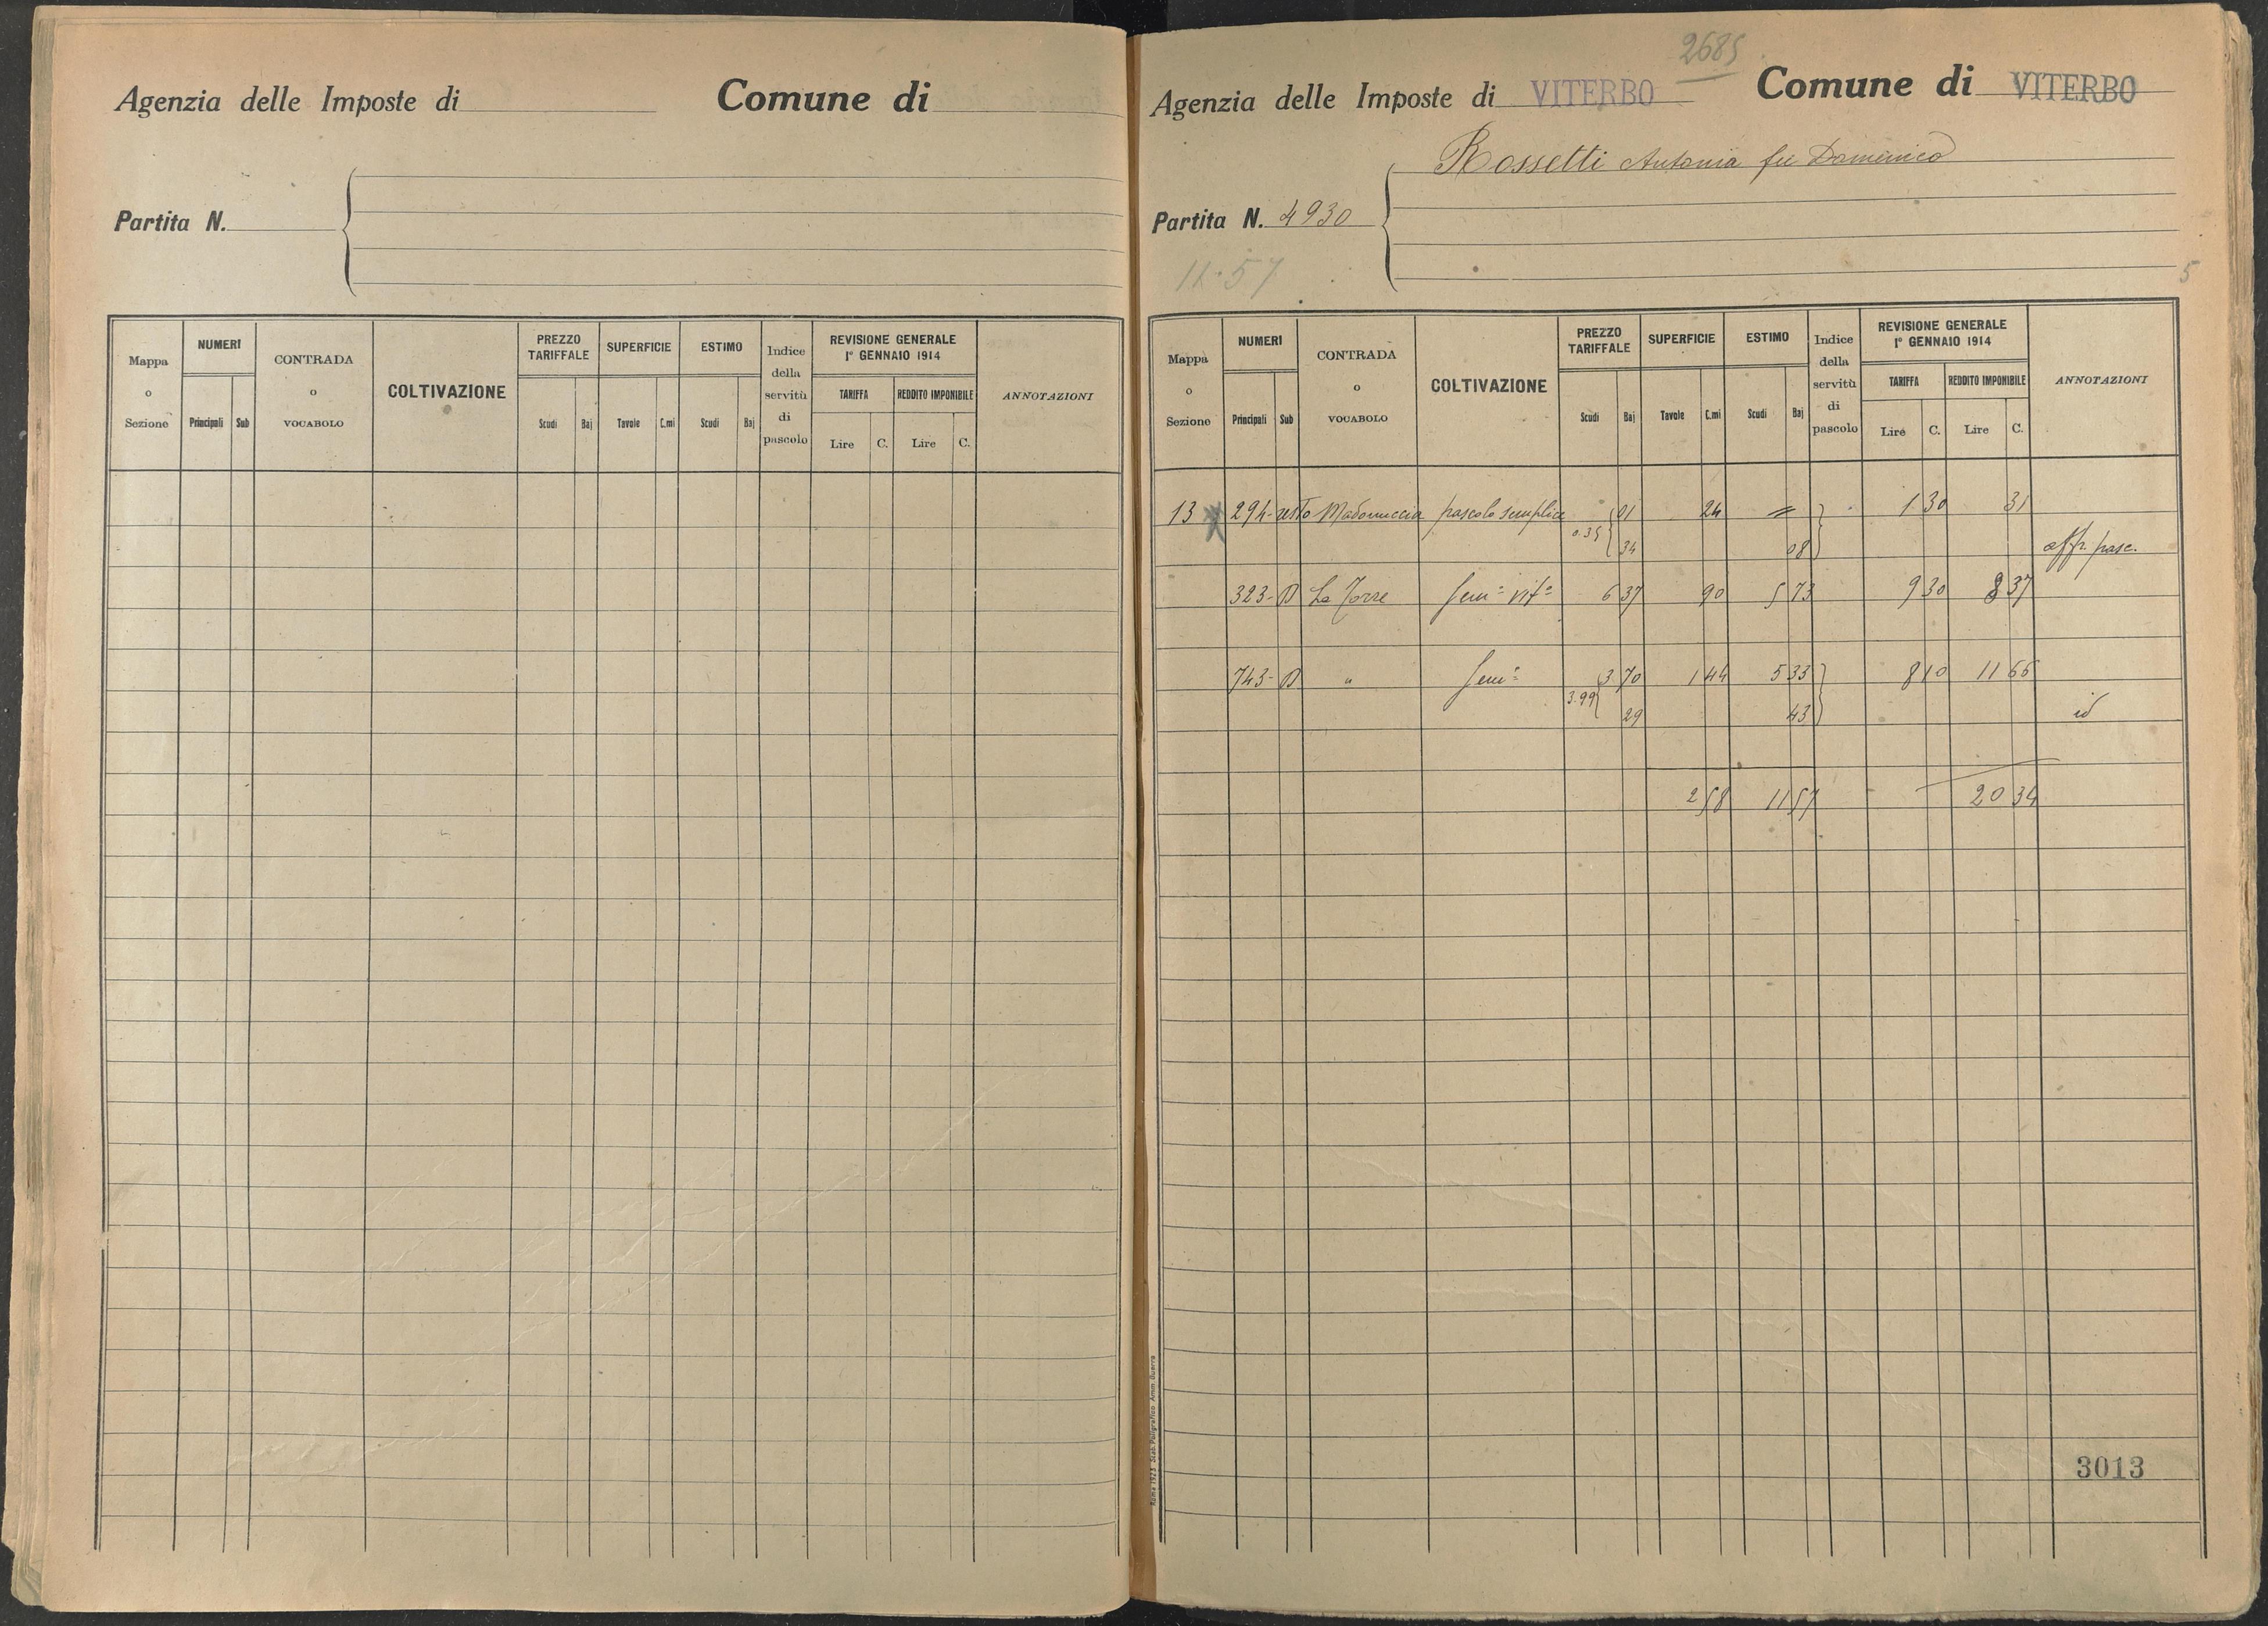 Agenzia delle Imposte di Comune di
Partita N.
Mappa o Sezione
NUMERI
Principali Sub
CONTRADA o VOCABOLO
COLTIVAZIONE
PREZZO TARIFFALE
Scudi Baj
SUPERFICIE
Tavole C.mi
ESTIMO
Scudi Baj
Indice della servitù di pascolo
REVISIONE GENERALE
1° GENNAIO 1914
TARIFFA REDDITO IMPONIBILE
Lire C. Lire C.
ANNOTAZIONI
2685
Agenzia delle Imposte di VITERBO Comune di VITERBO
Rossetti Antonia fu Domenico
Partita N. 4930
11.57
5
Mappa o Sezione
NUMERI
Principali Sub
CONTRADA o VOCABOLO
COLTIVAZIONE
PREZZO TARIFFALE
Scudi Baj
SUPERFICIE
Tavole C.mi
ESTIMO
Scudi Baj
Indice della servitù di pascolo
REVISIONE GENERALE
1° GENNAIO 1914
TARIFFA REDDITO IMPONIBILE
Lire C. Lire C.
ANNOTAZIONI
13 294-resto Madonuccia pascolo semplice 01 24 " 1 30 31
0.35 34 08 aff. pasc.
323- La Torre Sem= Vit= 6 37 90 5 73 9 30 8 37
743- " Sem= 3 70 1 44 5 33 8 10 11 66
3.99 29 43 id
2 58 11 57 20 34
3013
Roma 1923 Stab. Poligrafico Amm. Guerra